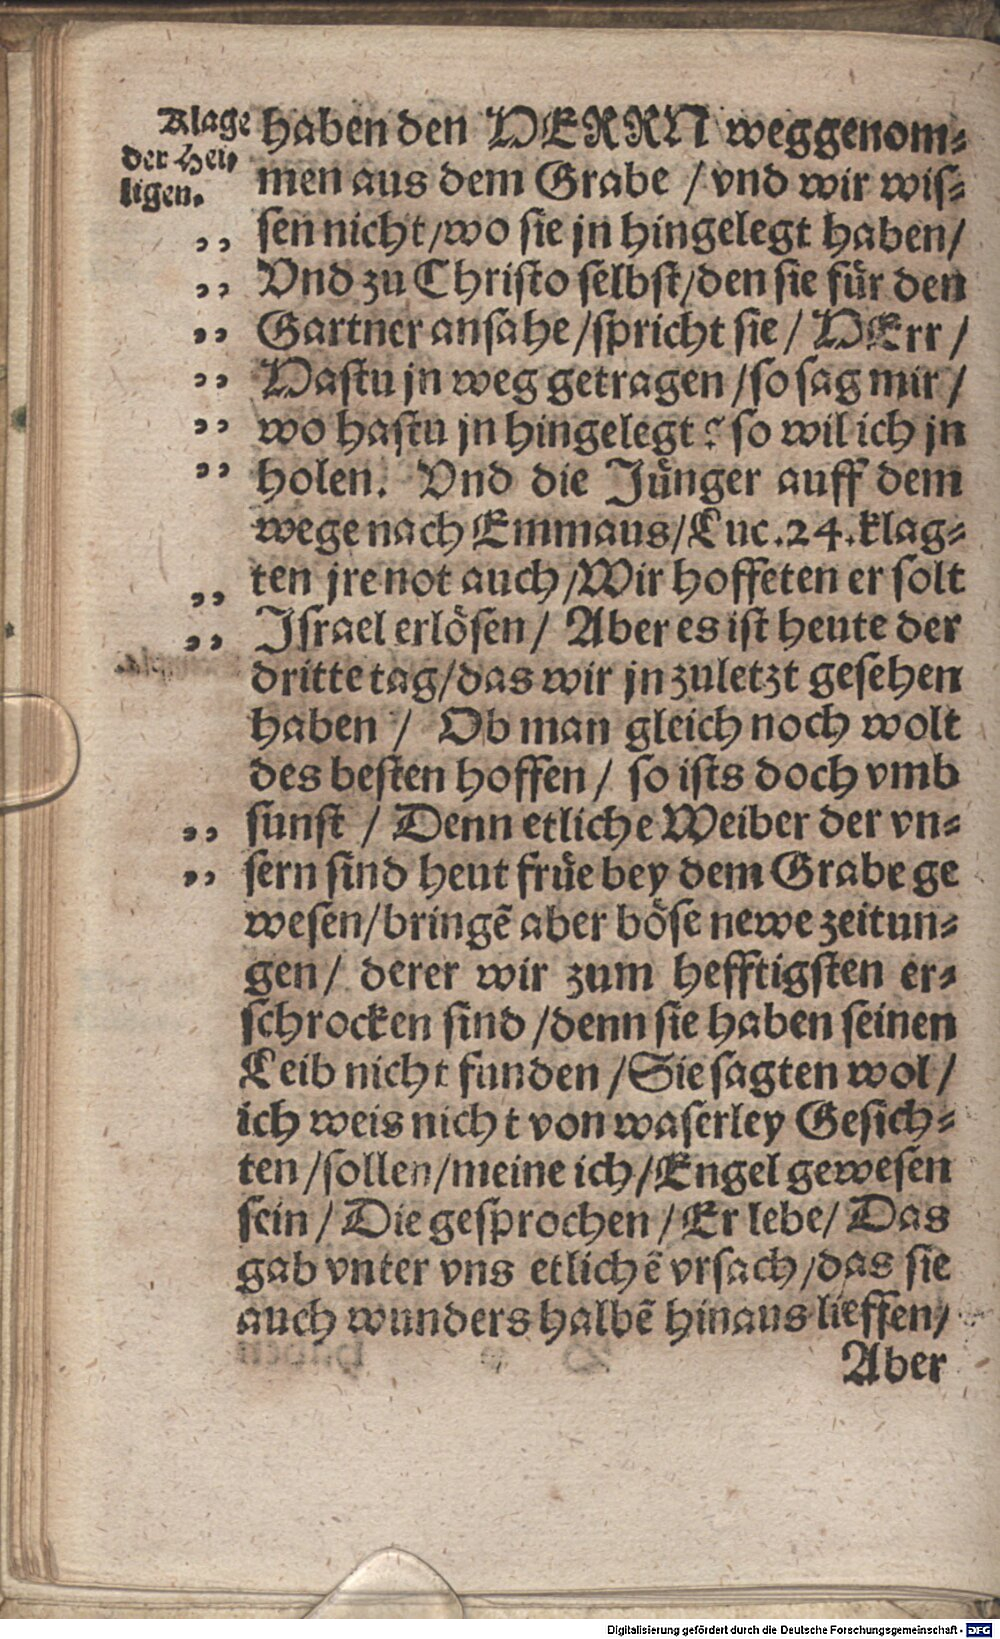 Klage
der Hei⸗
ligen.
haben den HERRN weggenom⸗
men aus dem Grabe / vnd wir wiſ⸗
ſen nicht / wo ſie jn hingelegt haben /
Vnd zu Chriſto ſelbſt / den ſie fuͤr den
Gartner anſahe / ſpricht ſie / HErr /
Haſtu jn weg getragen / ſo ſag mir /
wo haſtu jn hingelegt? ſo wil ich jn
holen. Vnd die Juͤnger auff dem
wege nach Emmaus / Luc. 24. klag⸗
ten jre not auch / Wir hoffeten er ſolt
Iſrael erloͤſen / Aber es iſt heute der
dritte tag / das wir jn zuletzt geſehen
haben / Ob man gleich noch wolt
des beſten hoffen / ſo iſts doch vmb
ſunſt / Denn etliche Weiber der vn⸗
ſern ſind heut fruͤe bey dem Grabe ge
weſen / bringē aber boͤſe newe zeitun⸗
gen / derer wir zum hefftigſten er⸗
ſchrocken ſind / denn ſie haben ſeinen
Leib nicht funden / Sie ſagten wol /
ich weis nicht von waſerley Geſich⸗
ten / ſollen / meine ich / Engel geweſen
ſein / Die geſprochen / Er lebe / Das
gab vnter vns etlichē vrſach / das ſie
auch wunders halbē hinaus lieffen /
Aber
Digitalisierung gefördert durch die Deutsche Forschungsgemeinschaft - DFG